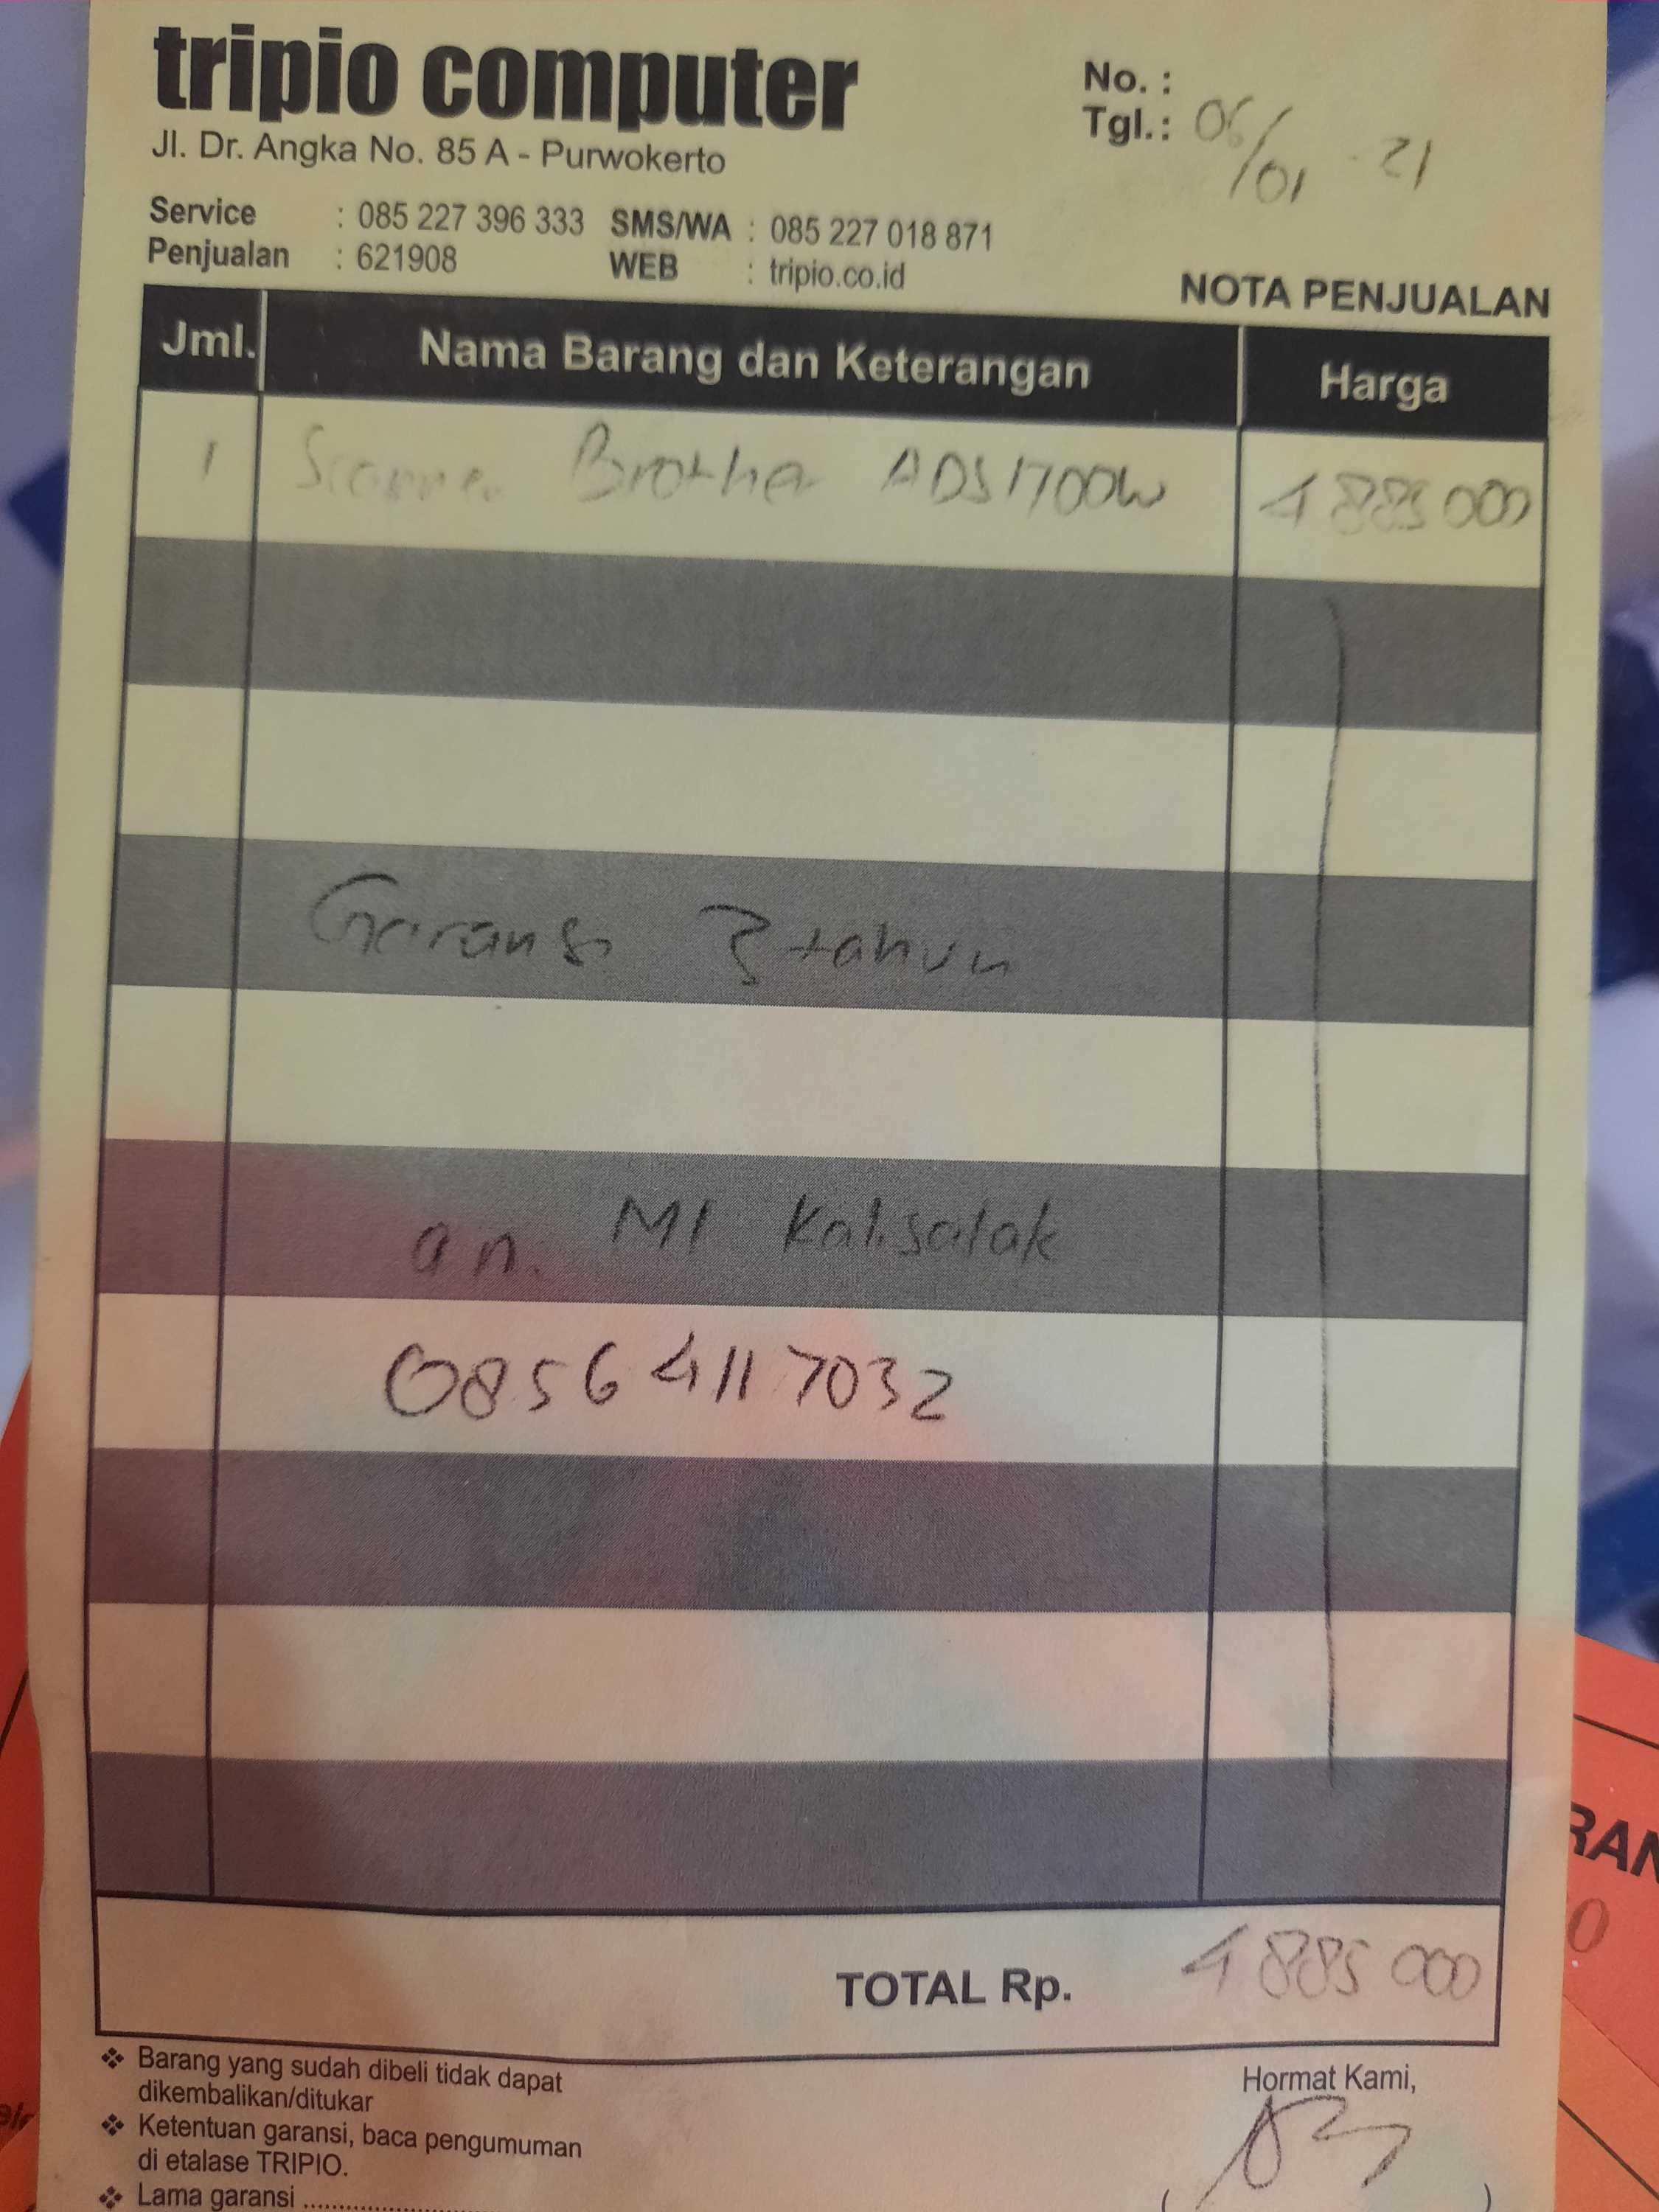 tripio computer
Jl. Dr. Angka No. 85 A - Purwokerto
No. :
Tgl.: 06/01 - 21
Service : 085 227 396 333 SMS/WA : 085 227 018 871
Penjualan : 621908 WEB : tripio.co.id
NOTA PENJUALAN
Jml. Nama Barang dan Keterangan Harga
1 Scanner Brother ADS1700W 4885000
Garansi 3 tahun
an. MI Kalisalak
08564117032
TOTAL Rp. 4885000
❖ Barang yang sudah dibeli tidak dapat
dikembalikan/ditukar
❖ Ketentuan garansi, baca pengumuman
di etalase TRIPIO.
❖ Lama garansi ........................
Hormat Kami,
( )
RAN
0